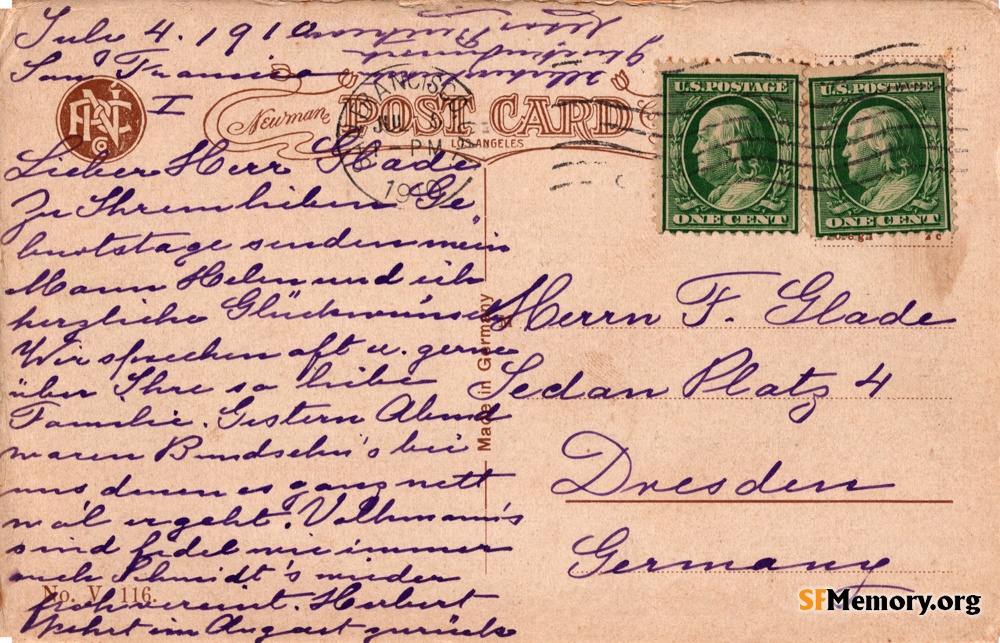 July 4. 1910
San Francisco
I
Newman
POST CARD
LOS ANGELES
FRANCISCO
JUL 5
PM
1910
U.S. POSTAGE
ONE CENT
U.S. POSTAGE
ONE CENT
Lieber Herr Glade
Zu Ihrem lieben Ge-
burtstage senden mein
Mann Helen und ich
herzliche Glückwünsche
Wir sprechen oft u. gerne
über Ihre so liebe
Familie. Gestern Abend
waren Bundsehn's bei
uns denen es ganz nett
mal ergeht. Volkmann's
sind fidel wie immer
auch Schmidt's wieder
froh vereint. Herbert
kehrt im August zurück
Made in Germany
Herrn F. Glade
Sedan Platz 4
Dresden
Germany
No. V. 116.
SFMemory.org